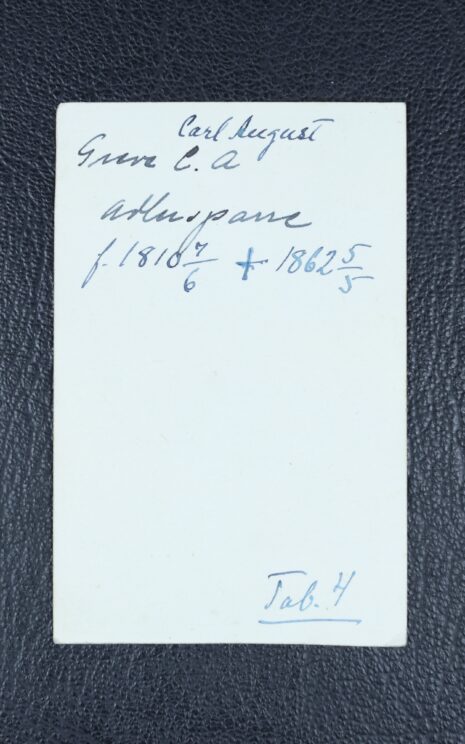 Carl August
Greve C. A
Adlersparre
f. 1810 7/6 + 1862 5/5
Tab. 4